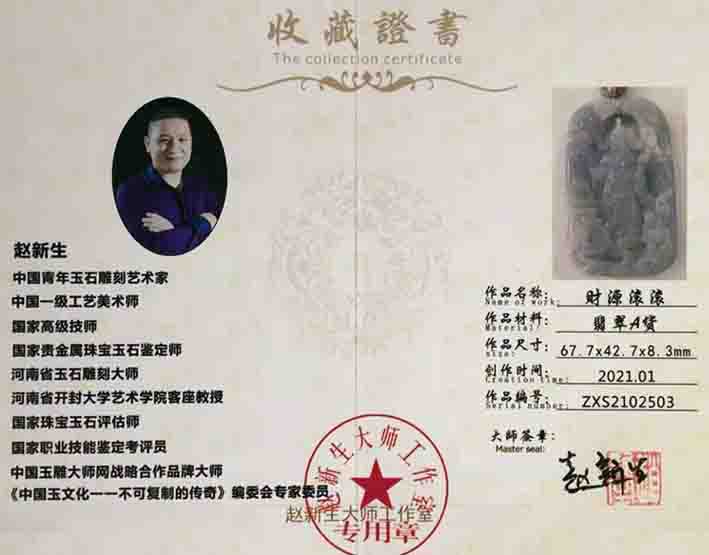 收藏證書
The collection certificate
赵新生
中国青年玉石雕刻艺术家
中国一级工艺美术师
国家高级技师
国家贵金属珠宝玉石鉴定师
河南省玉石雕刻大师
河南省开封大学艺术学院客座教授
国家珠宝玉石评估师
国家职业技能鉴定考评员
中国玉雕大师网战略合作品牌大师
《中国玉文化一一不可复制的传奇》编委会专家委员
作品名称: 财源滚滚
Name of work:
作品材料: 翡翠A货
Material:
作品尺寸: 67.7x42.7x8.3mm
size:
创作时间: 2021.01
Creation time:
作品编号: ZXS2102503
Serial number:
大师签章:
Master seal:
赵新生
赵新生大师工作室
专用章
赵新生大师工作室